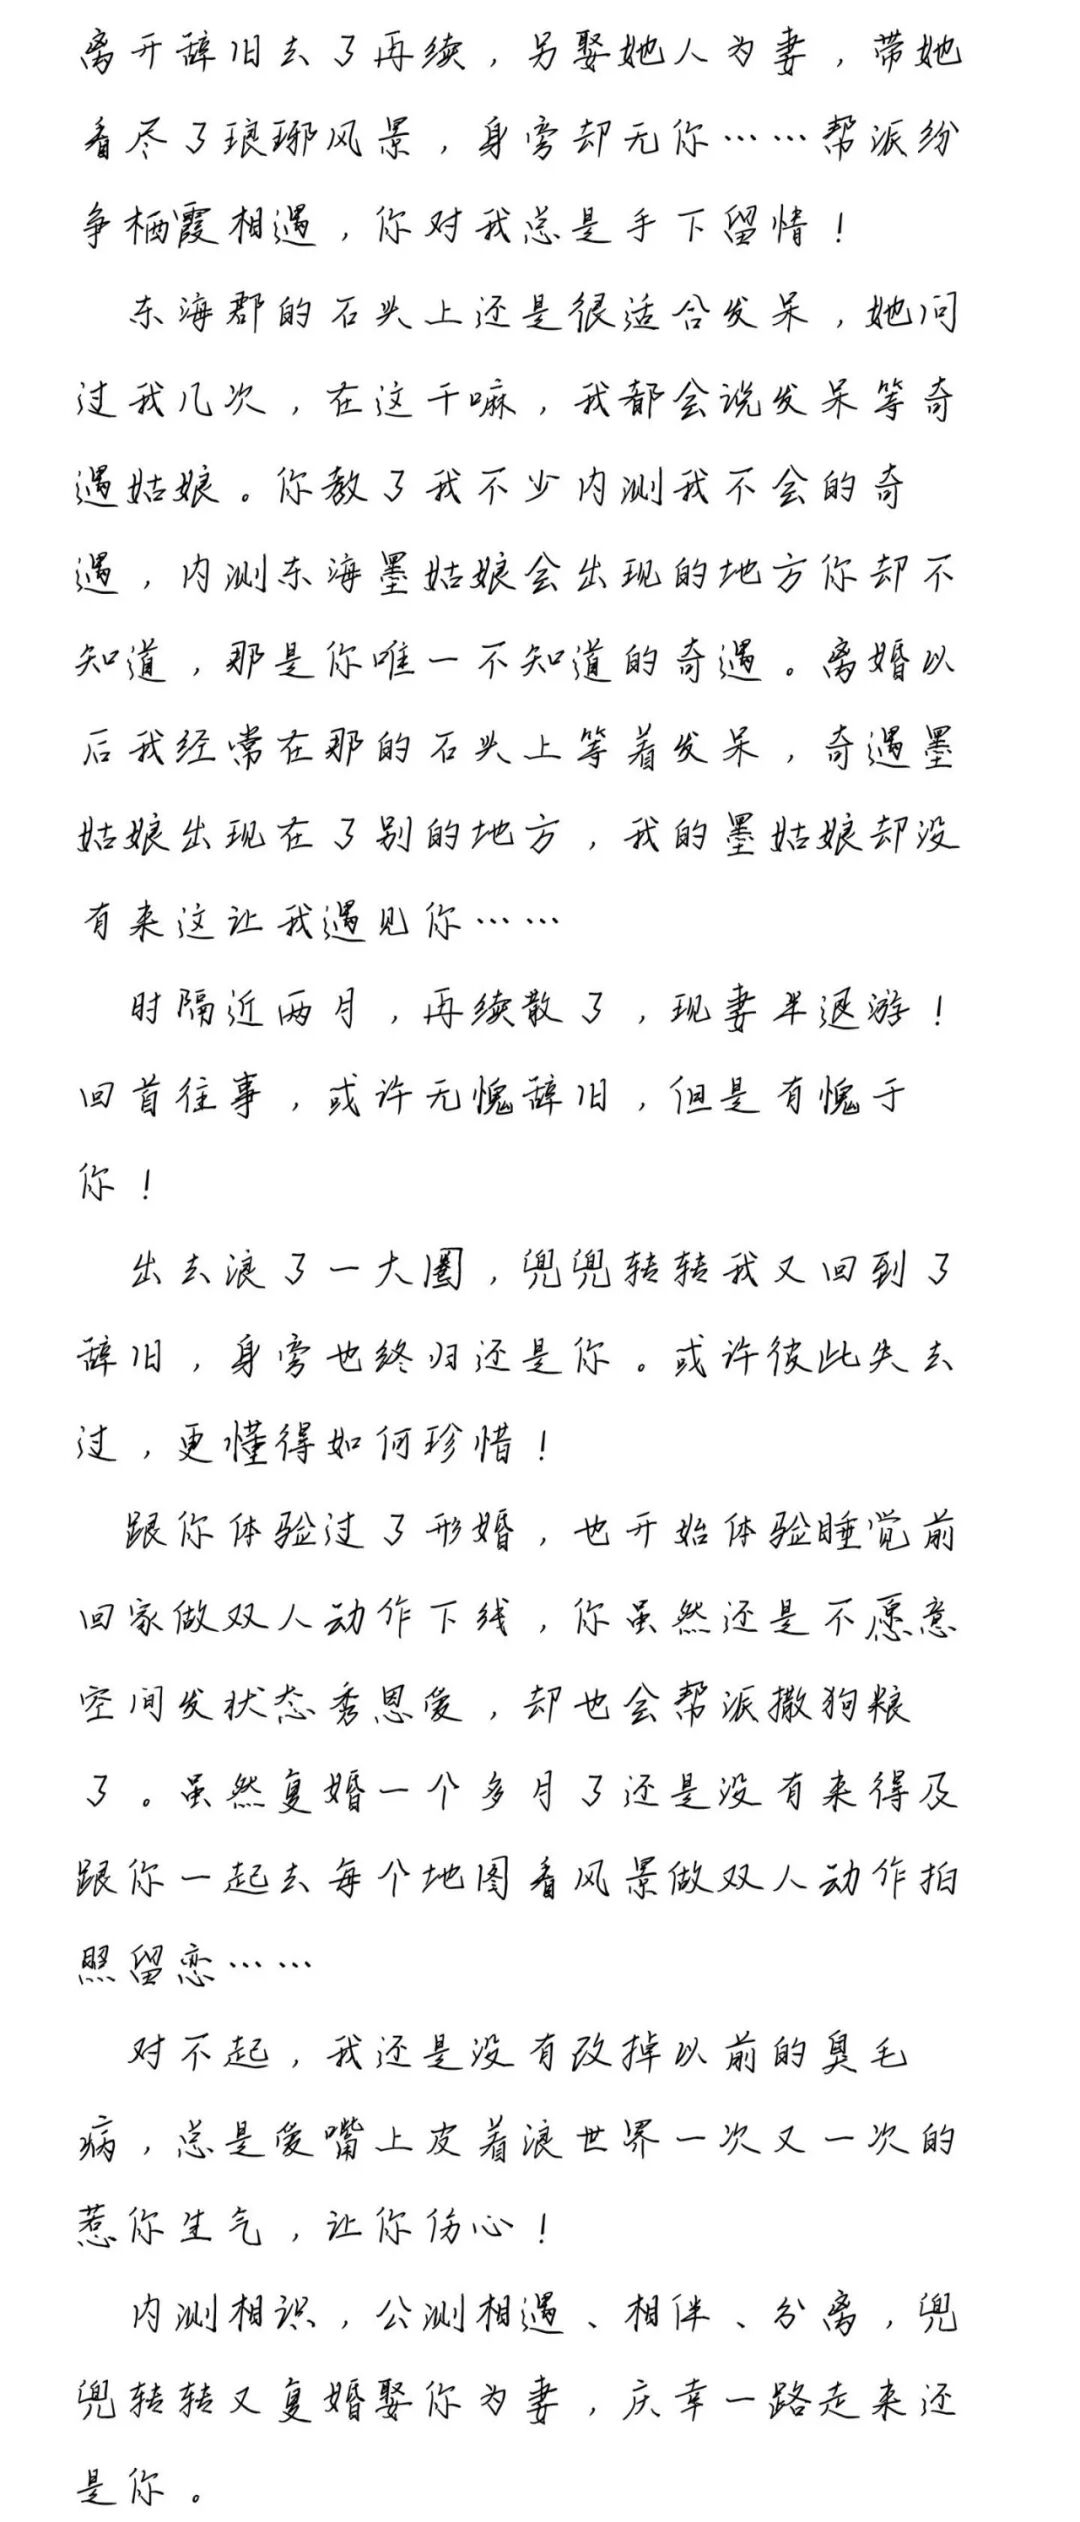 离开辞旧去了再续，另娶她人为妻，带她
看尽了琅琊风景，身旁却无你……帮派纷
争栖霞相遇，你对我总是手下留情！
东海郡的石头上还是很适合发呆，她问
过我几次，在这干嘛，我都会说发呆等奇
遇姑娘。你教了我不少内测我不会的奇
遇，内测东海墨姑娘会出现的地方你却不
知道，那是你唯一不知道的奇遇。离婚以
后我经常在那的石头上等着发呆，奇遇墨
姑娘出现在了别的地方，我的墨姑娘却没
有来这让我遇见你……
时隔近两月，再续散了，现妻半退游！
回首往事，或许无愧辞旧，但是有愧于
你！
出去浪了一大圈，兜兜转转我又回到了
辞旧，身旁也终归还是你。或许彼此失去
过，更懂得如何珍惜！
跟你体验过了形婚，也开始体验睡觉前
回家做双人动作下线，你虽然还是不愿意
空间发状态秀恩爱，却也会帮派撒狗粮
了。虽然复婚一个多月了还是没有来得及
跟你一起去每个地图看风景做双人动作拍
照留恋……
对不起，我还是没有改掉以前的臭毛
病，总是爱嘴上皮着浪世界一次又一次的
惹你生气，让你伤心！
内测相识，公测相遇、相伴、分离，兜
兜转转又复婚娶你为妻，庆幸一路走来还
是你。